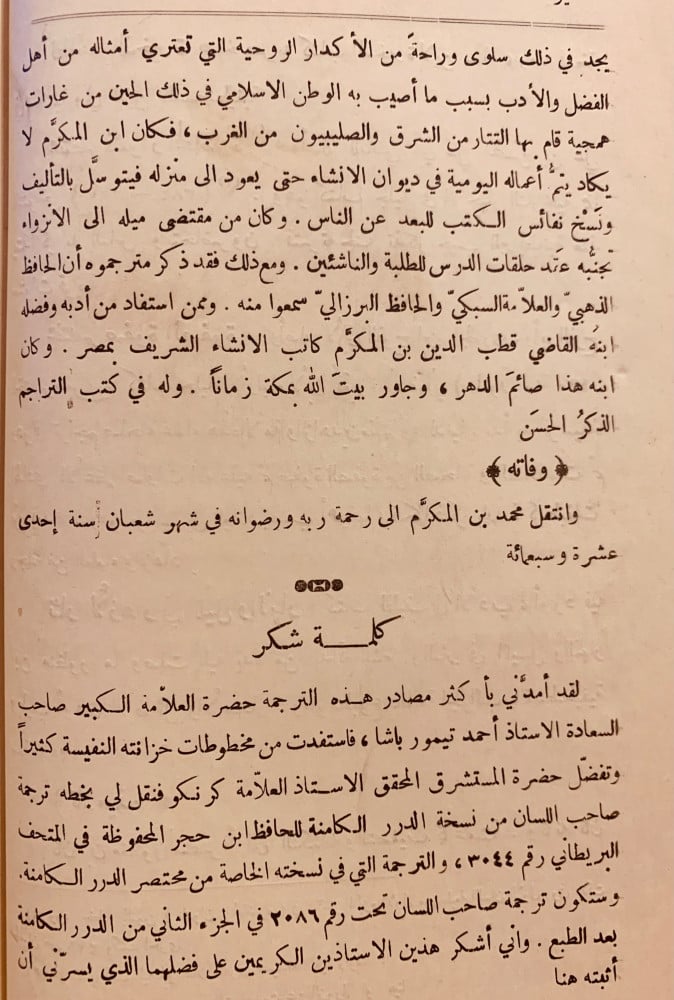 يجد في ذلك سلوى وراحةً من الأكدار الروحية التي تعتري أمثاله من أهل
الفضل والأدب بسبب ما أصيب به الوطن الاسلامي في ذلك الحين من غارات
همجية قام بها التتار من الشرق والصليبيون من الغرب ، فكان ابن المكرَّم لا
يكاد يتمُّ أعماله اليومية في ديوان الانشاء حتى يعود الى منزله فيتوسَّل بالتأليف
ونَسْخ نفائس الكتب للبعد عن الناس . وكان من مقتضى ميله الى الانزواء
تجنبُّه عقد حلقات الدرس للطلبة والناشئين . ومع ذلك فقد ذكر مترجموه أن الحافظ
الذهبيّ والعلاّمة السبكيّ والحافظ البرزاليّ سمعوا منه . وممن استفاد من أدبه وفضله
ابنهُ القاضي قطب الدين بن المكرَّم كاتب الانشاء الشريف بمصر . وكان
ابنه هذا صائمَ الدهر ، وجاور بيتَ الله بمكة زماناً . وله في كتب التراجم
الذكرُ الحسَن
﴿ وفاته ﴾
وانتقل محمد بن المكرَّم الى رحمة ربه ورضوانه في شهر شعبان سنة إحدى
عشرة وسبعمائة
كلمة شكر
لقد أمدَّني بأكثر مصادر هذه الترجمة حضرة العلاّمة الكبير صاحب
السعادة الاستاذ أحمد تيمور باشا ، فاستفدت من مخطوطات خزانته النفيسة كثيراً
وتفضّل حضرة المستشرق المحقق الاستاذ العلاّمة كرنكو فنقل لي بخطه ترجمة
صاحب اللسان من نسخة الدرر الكامنة للحافظ ابن حجر المحفوظة في المتحف
البريطاني رقم ٣٠٤٤ ، والترجمة التي في نسخته الخاصة من مختصر الدرر الكامنة.
وستكون ترجمة صاحب اللسان تحت رقم ٢٠٨٦ في الجزء الثاني من الدرر الكامنة
بعد الطبع . واني أشكر هذين الاستاذين الكريمين على فضلهما الذي يسرّني أن
أثبته هنا